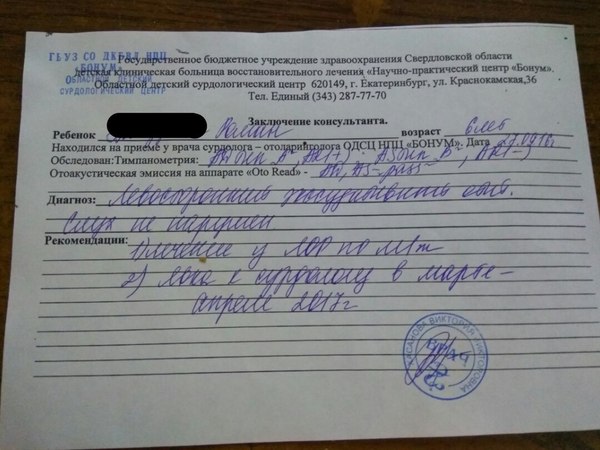 ГБУЗ СО ДКБВЛ НПЦ
«БОНУМ»
ОБЛАСТНОЙ ДЕТСКИЙ
СУРДОЛОГИЧЕСКИЙ ЦЕНТР
Государственное бюджетное учреждение здравоохранения Свердловской области
детская клиническая больница восстановительного лечения «Научно-практический центр «Бонум».
Областной детский сурдологический центр 620149, г. Екатеринбург, ул. Краснокамская,36
Тел. Единый (343) 287-77-70
Заключение консультанта.
Ребенок возраст 6 лет
Находился на приеме у врача сурдолога – отоларинголога ОДСЦ НПЦ «БОНУМ». Дата 27.09.16г
Обследован: Тимпанометрия: AD тип А, АR(+), AS тип В, АR(-)
Отоакустическая эмиссия на аппарате «Oto Read» - AD, AS - pass
Диагноз: Левосторонний экссудативный отит.
Слух не нарушен
Рекомендации:
1) лечение у ЛОР по м/ж
2) явка к сурдологу в марте-
апреле 2017г
ХАСАНОВА ВИКТОРИЯ ВИКТОРОВНА
ВРАЧ